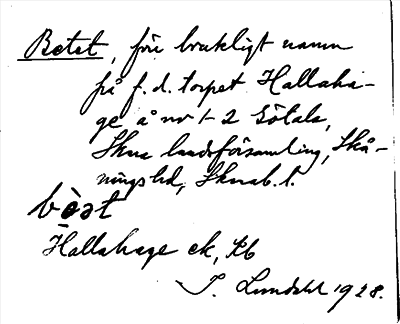 Betet, förr brukligt namn
på f. d. torpet Hallaha-
ge å nr 1-2 Götala,
Skara landsförsamling, Skå-
nings hd, Skarab. l.
Hallahage ek, kb
S. Lundahl 1928.